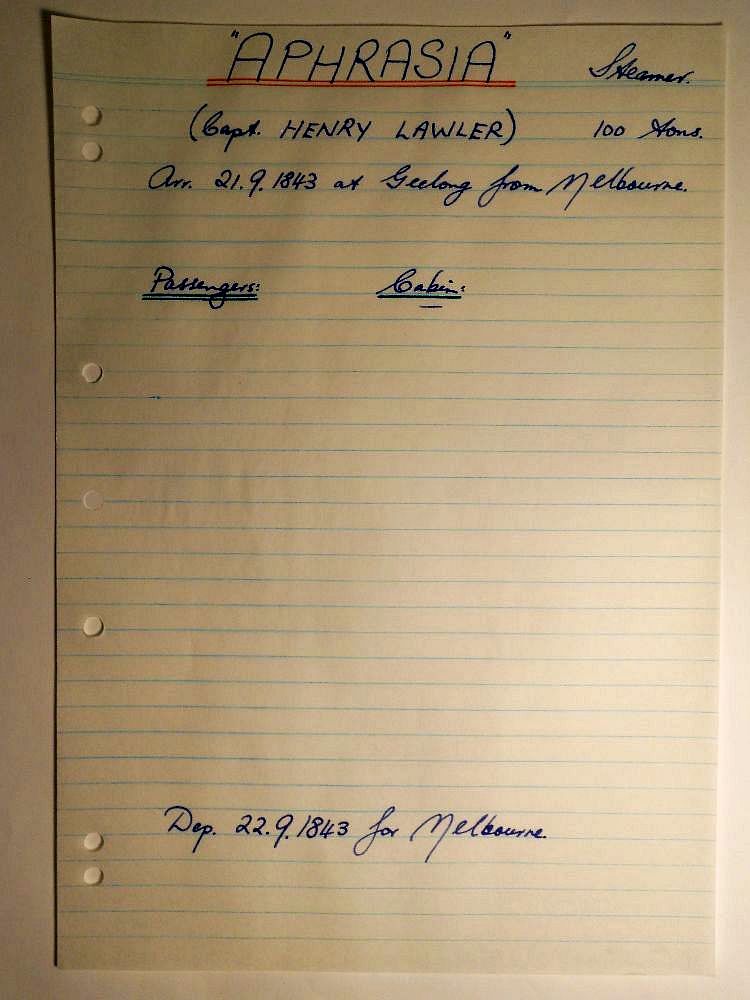 "APHRASIA" Steamer.
(Capt. HENRY LAWLER) 100 tons.
Arr. 21.9.1843 at Geelong from Melbourne.
Passengers: Cabin:
Dep. 22.9.1843 for Melbourne.